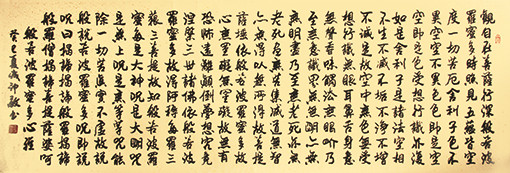 觀自在菩薩行深般若波
羅蜜多時照見五蘊皆空
度一切苦厄舍利子色不
異空空不異色色即是空
空即是色受想行識亦復
如是舍利子是諸法空相
不生不滅不垢不淨不增
不減是故空中無色無受
想行識無眼耳鼻舌身意
無色聲香味觸法無眼界乃
至無意識界無無明亦無
無明盡乃至無老死亦無
老死盡無苦集滅道無智
亦無得以無所得故菩提
薩埵依般若波羅蜜多故
心無罣礙無罣礙故無有
恐怖遠離顛倒夢想究竟
涅槃三世諸佛依般若波
羅蜜多故得阿耨多羅三
藐三菩提故知般若波羅
蜜多是大神咒是大明咒
是無上咒是無等等咒能
除一切苦真實不虛故說
般若波羅蜜多咒即說
咒曰揭諦揭諦波羅揭諦
波羅僧揭諦菩提薩婆呵
般若波羅蜜多心經
癸巳夏書